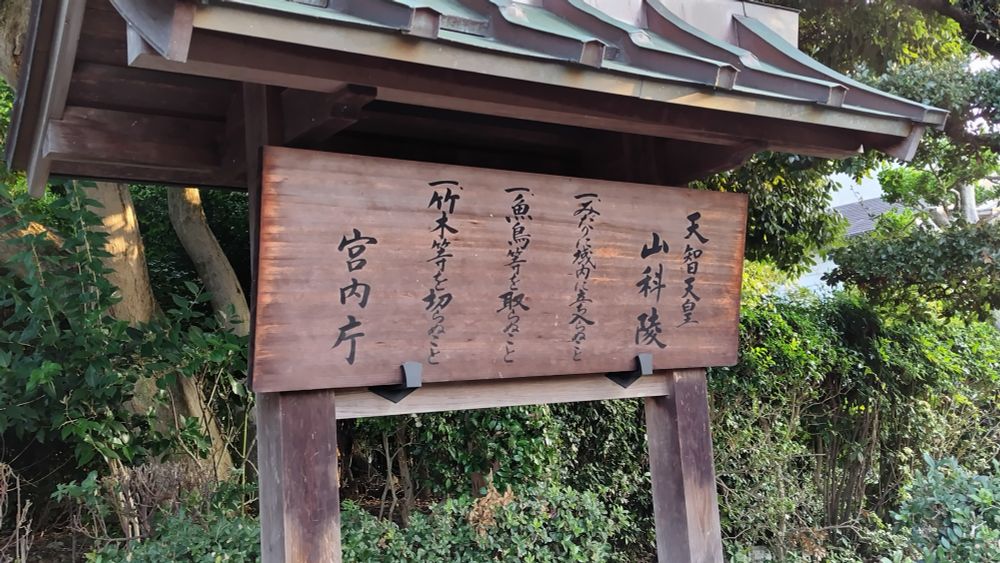 天智天皇
山科陵
一、みだりに域内に立ち入らぬこと
一、魚鳥等を取らぬこと
一、竹木等を切らぬこと
宮内庁